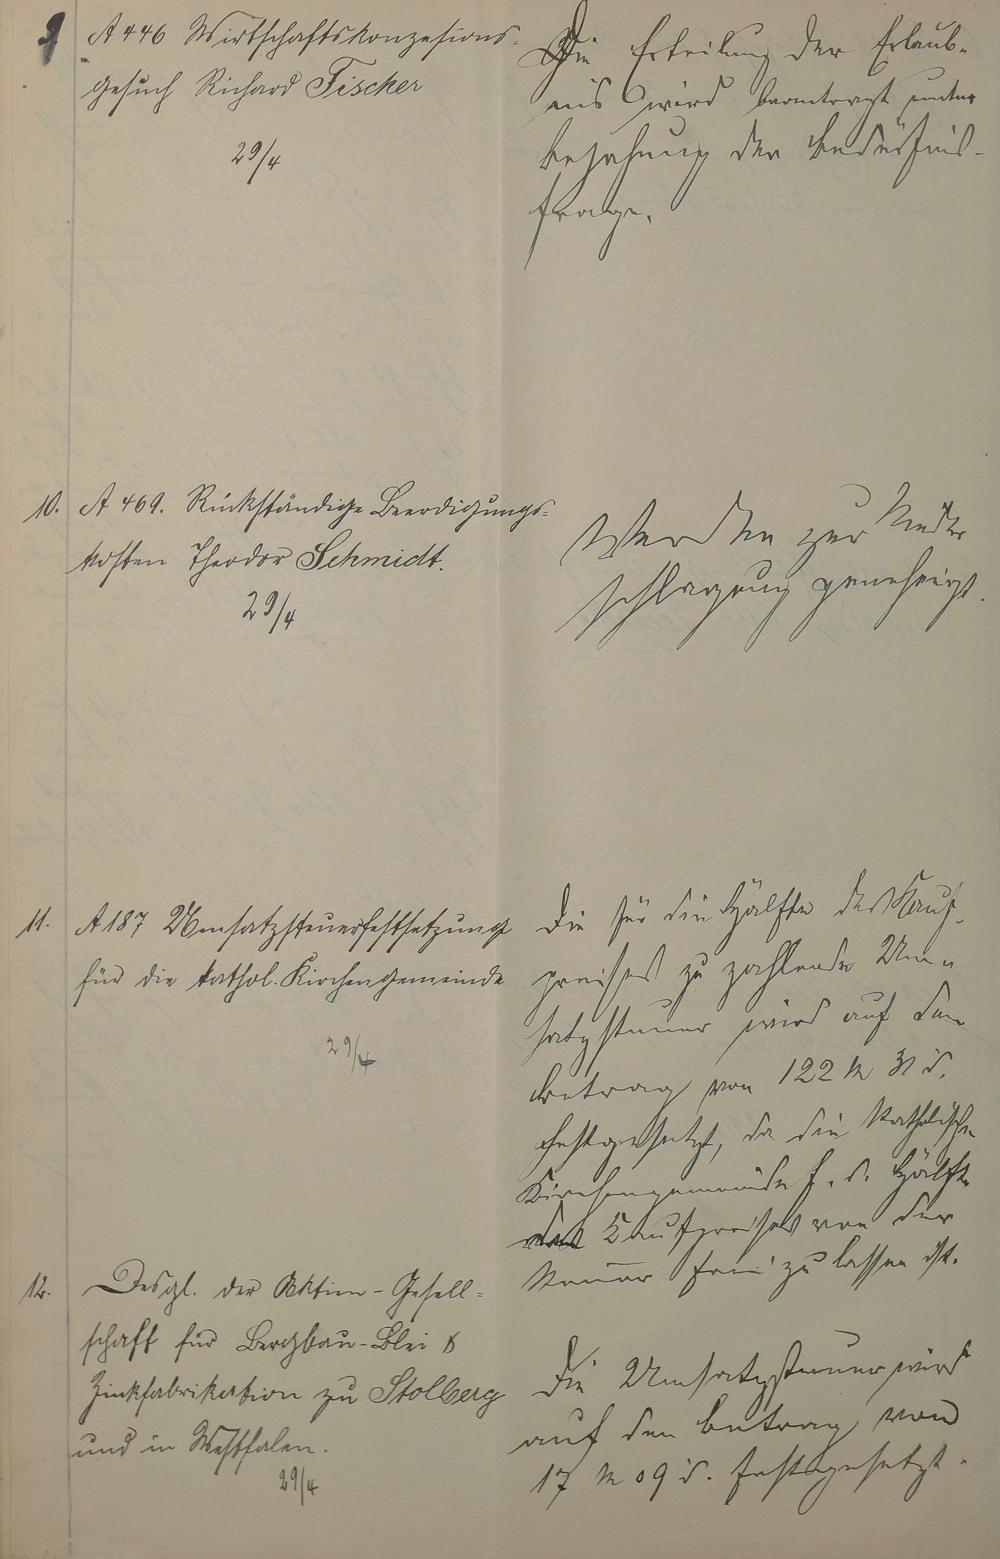 9
A 446 Wirtschaftskonzesions-
gesuch Richard Fischer
29/4
Die Erteilung der Erlaub-
nis wird beantragt unter
Bejahung der Bedürfnis-
frage.
10. A 469. Rückständige Beerdigungs-
kosten Theodor Schmidt.
29/4
Werden zur Nieder
schlagung genehmigt.
11. A 187 Umsatzsteuerfestsetzung
für die kathol. Kirchengemeinde
29/4
Die für die Hälfte des Kauf-
preises zu zahlende Um-
satzsteuer wird auf den
Betrag von 122 M
festgesetzt, da die katholische
Kirchengemeinde f. d. Hälfte
des Kaufpreises von der
Steuer frei zu lassen ist.
12. Desgl. der Aktien-Gesell-
schaft für Bergbau-Blei &
Zinkfabrikation zu Stolberg
und in Westfalen.
29/4
Die Umsatzsteuer wird
auf den Betrag von
17 M 09 d. festgesetzt.